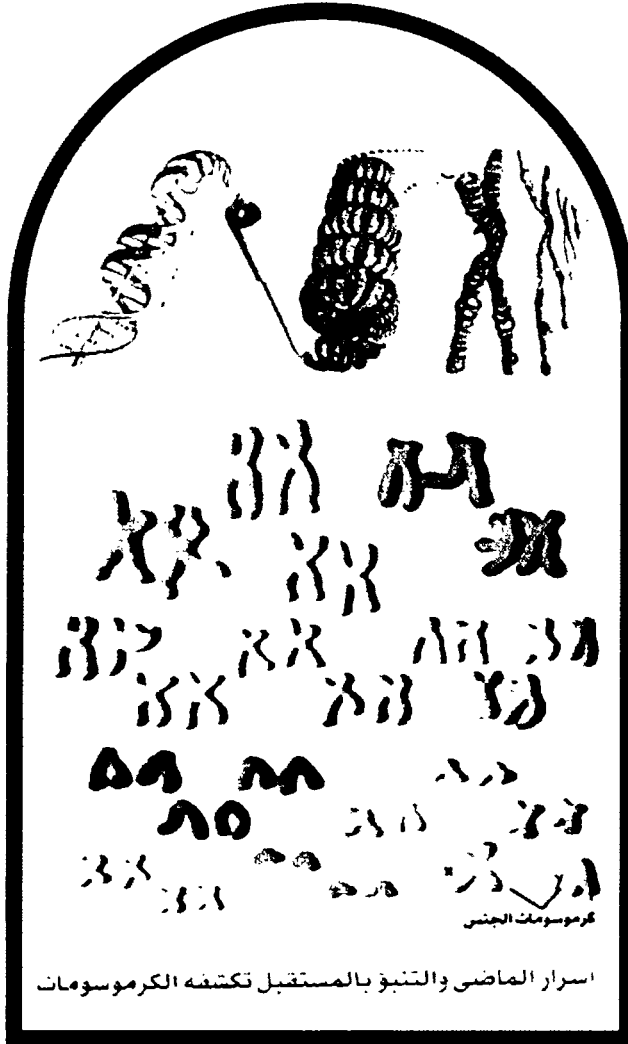 كرموسومات الجنس
اسرار الماضى والتنبؤ بالمستقبل تكشفه الكرموسومات